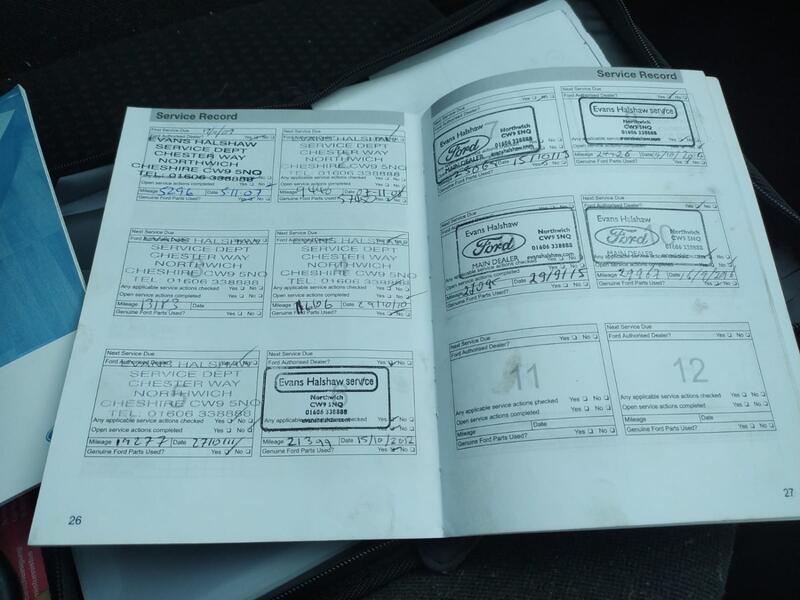 Service Record
Next Service Due
Ford Authorised Dealer? Yes No
EVANS HALSHAW
SERVICE DEPT
CHESTER WAY
NORTHWICH
CHESHIRE CW9 5NQ
TEL. 01606 338888
Open service actions completed Yes No
Mileage 5296 Date 5.11.07
Genuine Ford Parts Used? Yes No
Next Service Due
EVANS HALSHAW
SERVICE DEPT
CHESTER WAY
NORTHWICH
CHESHIRE CW9 5NQ
TEL: 01606 338888
Any applicable service actions checked Yes No
Open service actions completed Yes No
Mileage 9440 Date
Genuine Ford Parts Used? Yes No
Next Service Due
Ford Authorised Dealer?
EVANS HALSHAW
SERVICE DEPT
CHESTER WAY
NORTHWICH
CHESHIRE CW9 5NQ
TEL: 01606 338888
Any applicable service actions checked Yes No
Open service actions completed Yes No
Mileage 13183 Date
Genuine Ford Parts Used? Yes No
Next Service Due
Ford Authorised Dealer?
EVANS HALSHAW
SERVICE DEPT
CHESTER WAY
NORTHWICH
CHESHIRE CW9 5NQ
TEL: 01606 338888
Any applicable service actions checked Yes No
Open service actions completed Yes No
Mileage Date 29/10/10
Genuine Ford Parts Used? Yes No
Next Service Due
Ford Authorised Dealer? Yes No
EVANS HALSHAW
SERVICE DEPT
CHESTER WAY
NORTHWICH
CHESHIRE CW9 5NQ
TEL: 01606 338888
Any applicable service actions checked Yes No
Open service actions completed Yes No
Mileage Date 27/10/11
Genuine Ford Parts Used? Yes No
Next Service Due
Ford Authorised Dealer? Yes No
Evans Halshaw service
Northwich
CW9 5NQ
01606 338888
evanshalshaw.com
Open service actions completed Yes No
Mileage 21399 Date 15/10/2012
Genuine Ford Parts Used? Yes No
26
Service Record
Next Service Due
Yes No
7
Evans Halshaw
Ford
MAIN DEALER
Northwich
CW9 5NQ
01606 338888
evanshalshaw.com
Date 15/10/13
Genuine Ford Parts Used? Yes No
Next Service Due
Yes No
Evans Halshaw service
Northwich
CW9 5NQ
01606 338888
evanshalshaw.com
Mileage Date
Genuine Ford Parts Used? Yes No
Next Service Due
Evans Halshaw
Ford
MAIN DEALER
Northwich
CW9 5NQ
01606 338888
evanshalshaw.com
Open service actions completed Yes No
Mileage Date 29/9/15
Genuine Ford Parts Used? Yes No
Next Service Due
Evans Halshaw
Ford
MAIN DEALER
10
Northwich
CW9 5NQ
01606 338888
evanshalshaw.com
Open service actions completed Yes No
Mileage 29967 Date
Genuine Ford Parts Used? Yes No
Next Service Due
Ford Authorised Dealer? Yes No
11
Any applicable service actions checked Yes No
Open service actions completed Yes No
Mileage Date
Genuine Ford Parts Used? Yes No
Next Service Due
Ford Authorised Dealer? Yes No
12
Any applicable service actions checked Yes No
Open service actions completed Yes No
Mileage Date
Genuine Ford Parts Used? Yes No
27